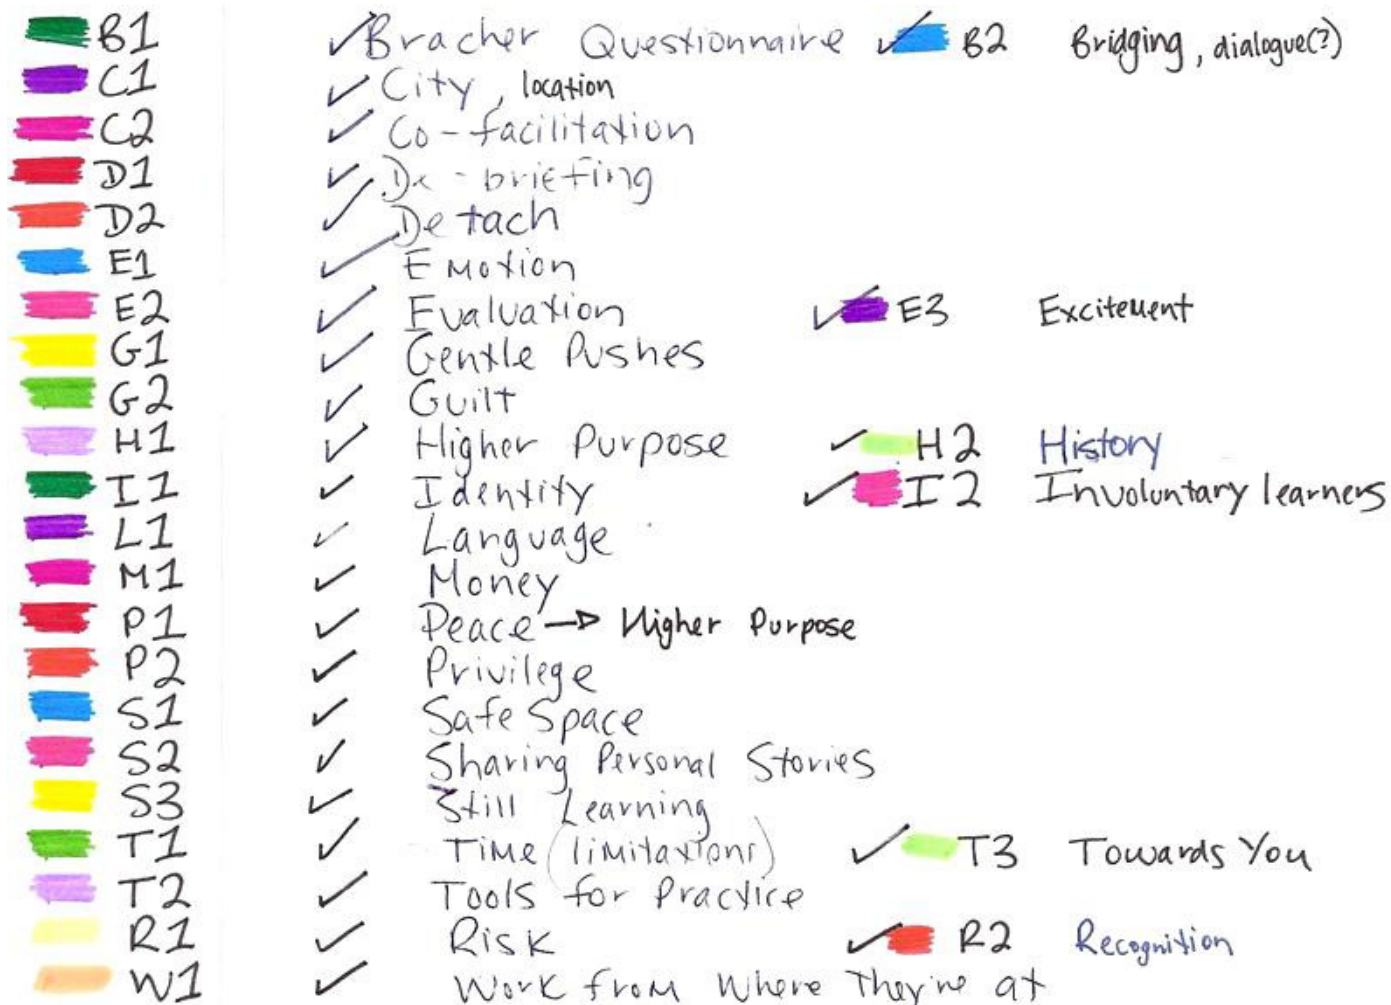 B1 ✓ Bracher Questionnaire ✓ B2 Bridging, dialogue(?)
C1 ✓ City, location
C2 ✓ Co-facilitation
D1 ✓ De-briefing
D2 ✓ Detach
E1 ✓ Emotion
E2 ✓ Evaluation ✓ E3 Excitement
G1 ✓ Gentle Pushes
G2 ✓ Guilt
H1 ✓ Higher Purpose ✓ H2 History
I1 ✓ Identity ✓ I2 Involuntary learners
L1 ✓ Language
M1 ✓ Money
P1 ✓ Peace → Higher Purpose
P2 ✓ Privilege
S1 ✓ Safe Space
S2 ✓ Sharing Personal Stories
S3 ✓ Still Learning
T1 ✓ Time (limitations) ✓ T3 Towards You
T2 ✓ Tools for Practice
R1 ✓ Risk ✓ R2 Recognition
W1 ✓ Work from Where They're at